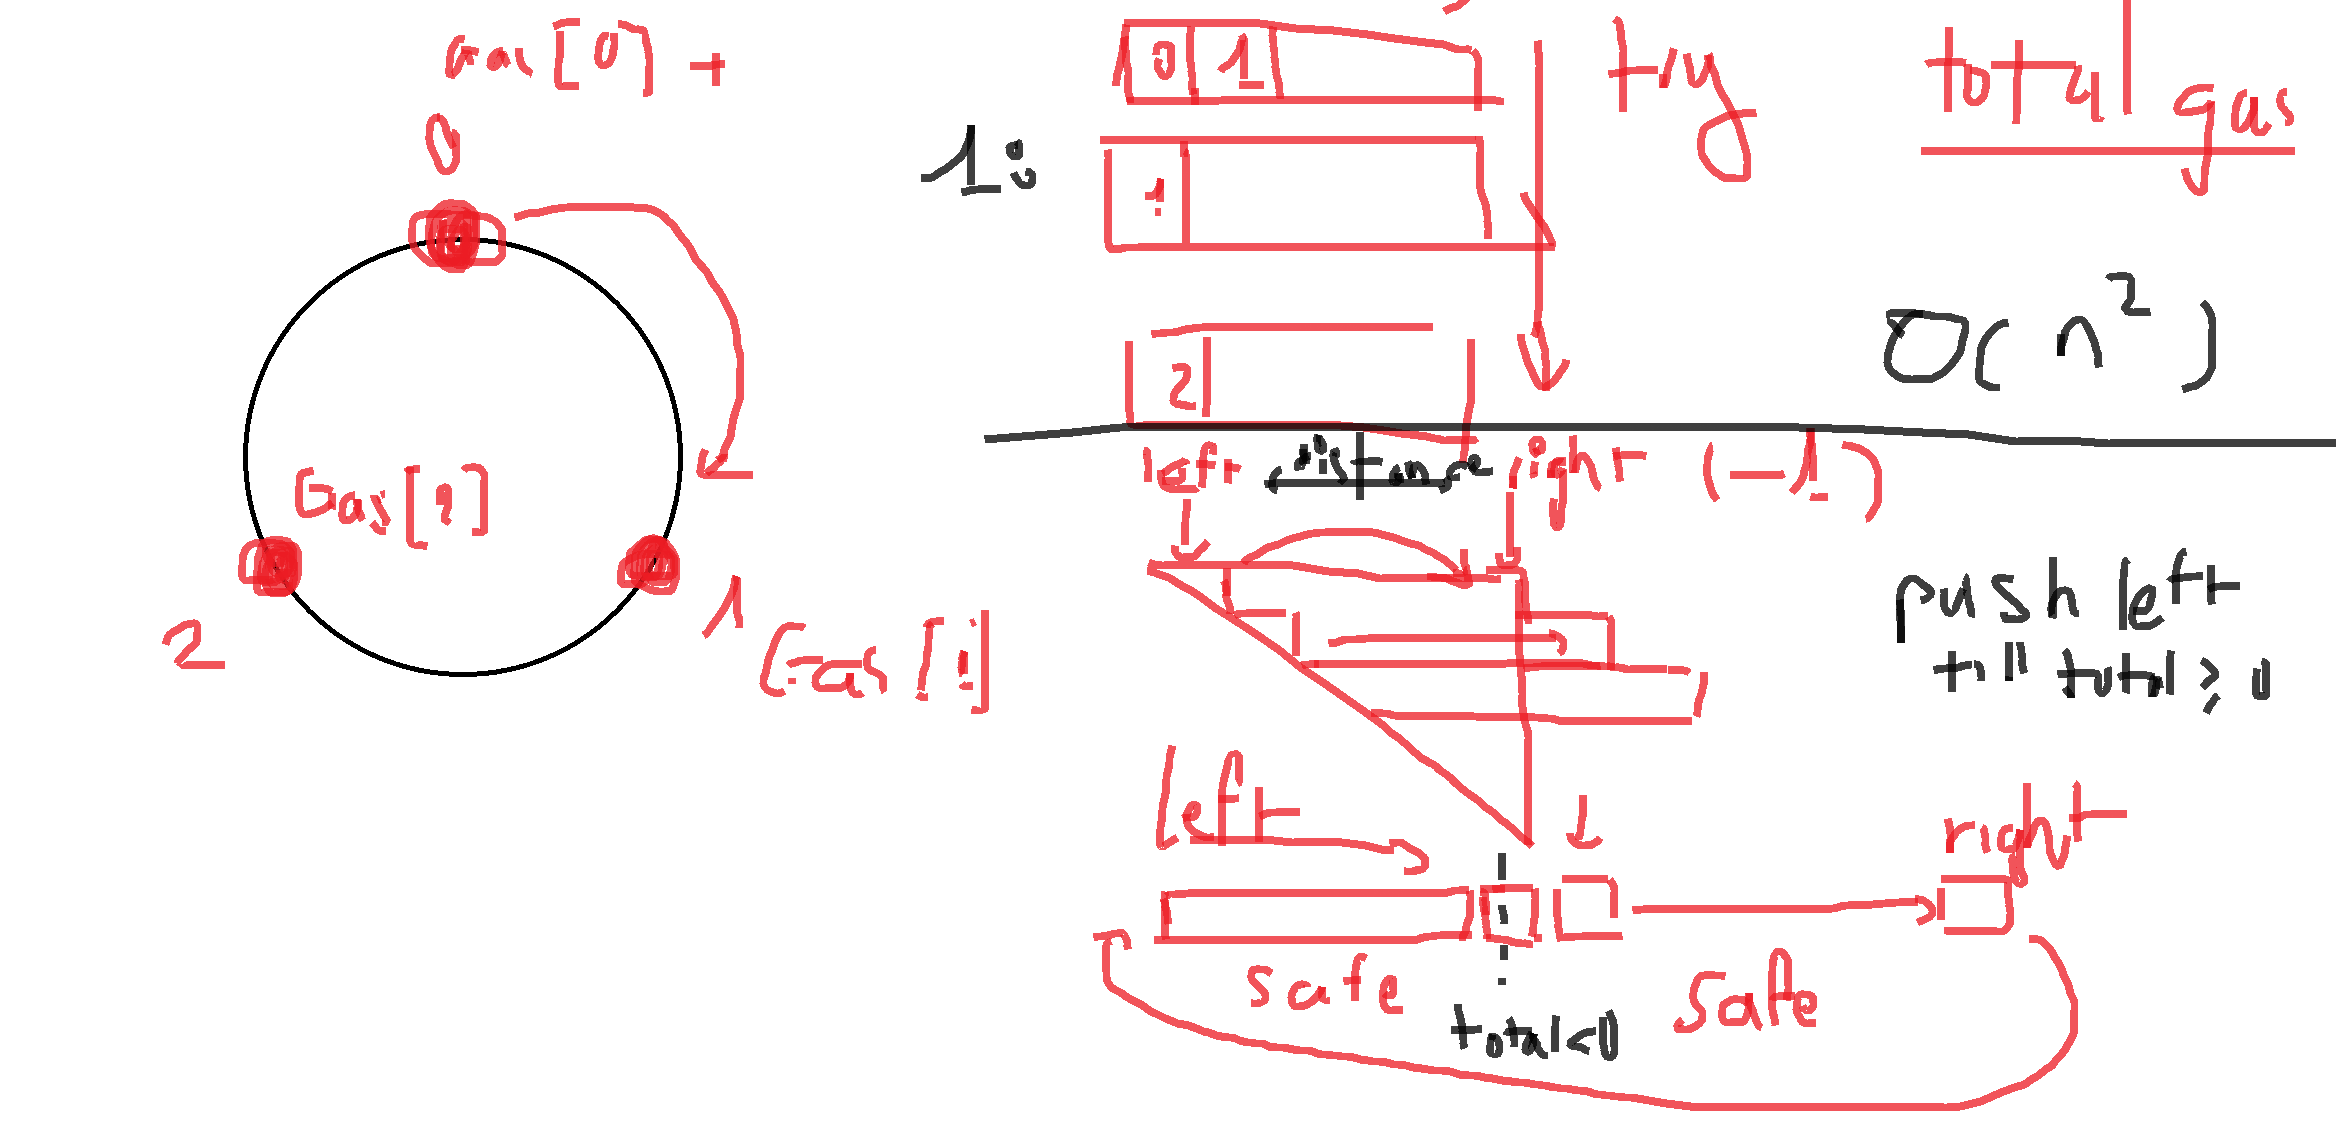 Gas[0] +
0
Gas[2]
2
1
Gas[1]
0 1
1:
1
2
try
total gas
O(n²)
left distance right (-1)
push left
till total ≥ 0
left
right
safe
safe
total<0